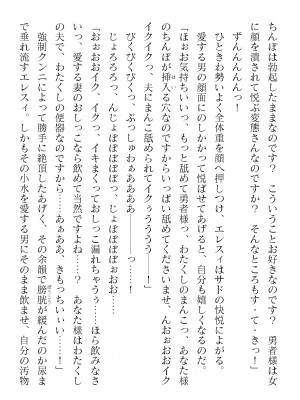 ちんぽは勃起したままなのです？　こういうことお好き？　勇者様は女
に顔を潰されて悦ぶ変態さんなのですか？　そんなところもす・て・き～っ！
ずんんんんんっ！
ひときわ勢いよく全体重を顔へ押しつけ、エレスィはサドの快悦によがる。
愛する男の顔面にのしかかって悦ばせてあげると、自分も嬉しくなるのだ。
「はぉお気持ちいいっ、もっと舐めて勇者様っ、わたくしのまんこっ、あなた様
のちんぽが挿入るんなのですからいっぱい舐めてくださいませ、んぉおおイク
イクイクっ、夫にまんこ舐められてイクぅうううう――っ！」
びくびくびくっ、ぶっしゅわぁああああ――っ……っ！
じょろろろっ、んじょぼぼぼぼっ、じょぼぼぼぼぉおお……
「おぉおおイク、イク、イキまくっておしっこ漏れちゃうぅ……ほら飲みなさ
いっ、愛する妻のおしっこなら飲めて当然ですよね……？　あなた様はわたくし
の夫で、わたくしの便器なのですから……あぁああ、きもっちいいぃ……！」
強制クンニによって勝手に絶頂したあげく、その余韻で膀胱が緩んだのか尿ま
で垂れ流すエレスィ。しかもその小水を愛する男にそのまま飲ませ、自分の汚物